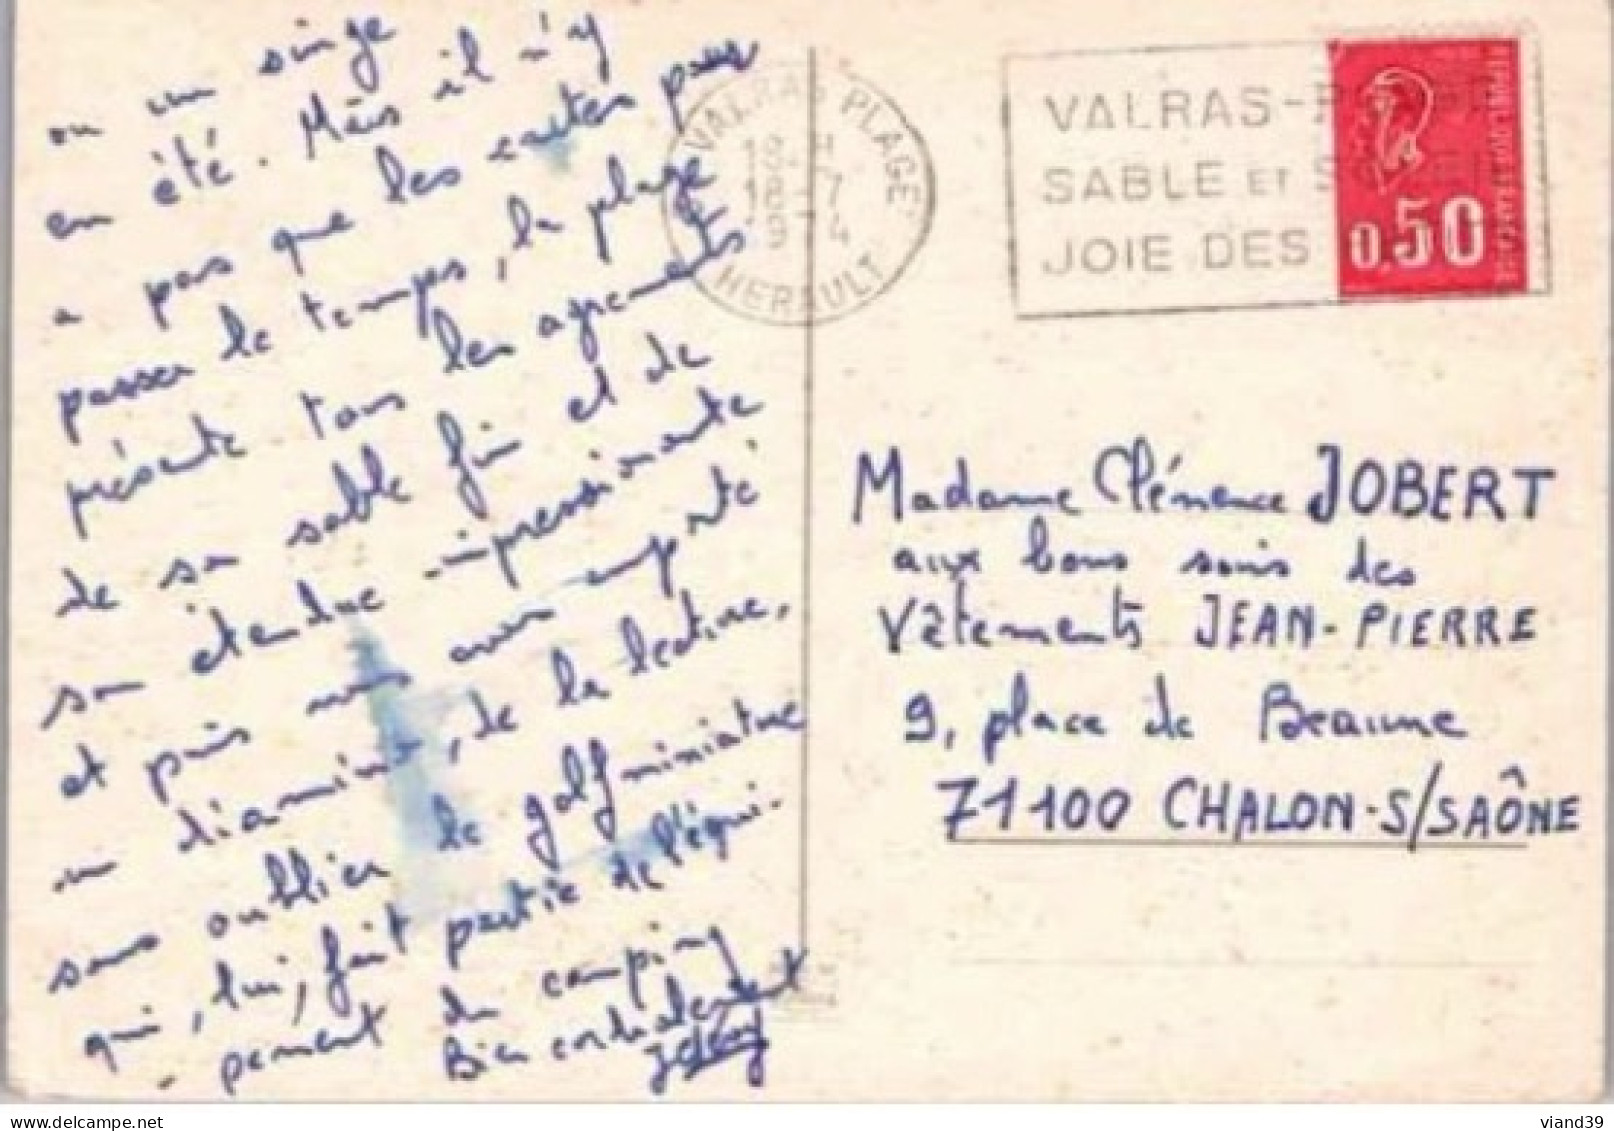 ou un singe
en été. Mais il n'y
a pas que les cartes pour
passer le temps, la plage
présente tous les agréments
de sa sable fin et de
son étendue impressionnante
et puis nous avons emporté
un diamino, de la lecture,
sans oublier le golf miniature
qui, lui, fait partie de l'équi-
- pement du camping
Bien cordialement
VALRAS PLAGE
18 H
18 -7
1974
HERAULT
VALRAS-PLAGE
SABLE ET SOLEIL
JOIE DES
0,50
Madame Clémence JOBERT
aux bons soins des
Vêtements JEAN-PIERRE
9, place de Beaune
71100 CHALON-S/SAÔNE
viand39